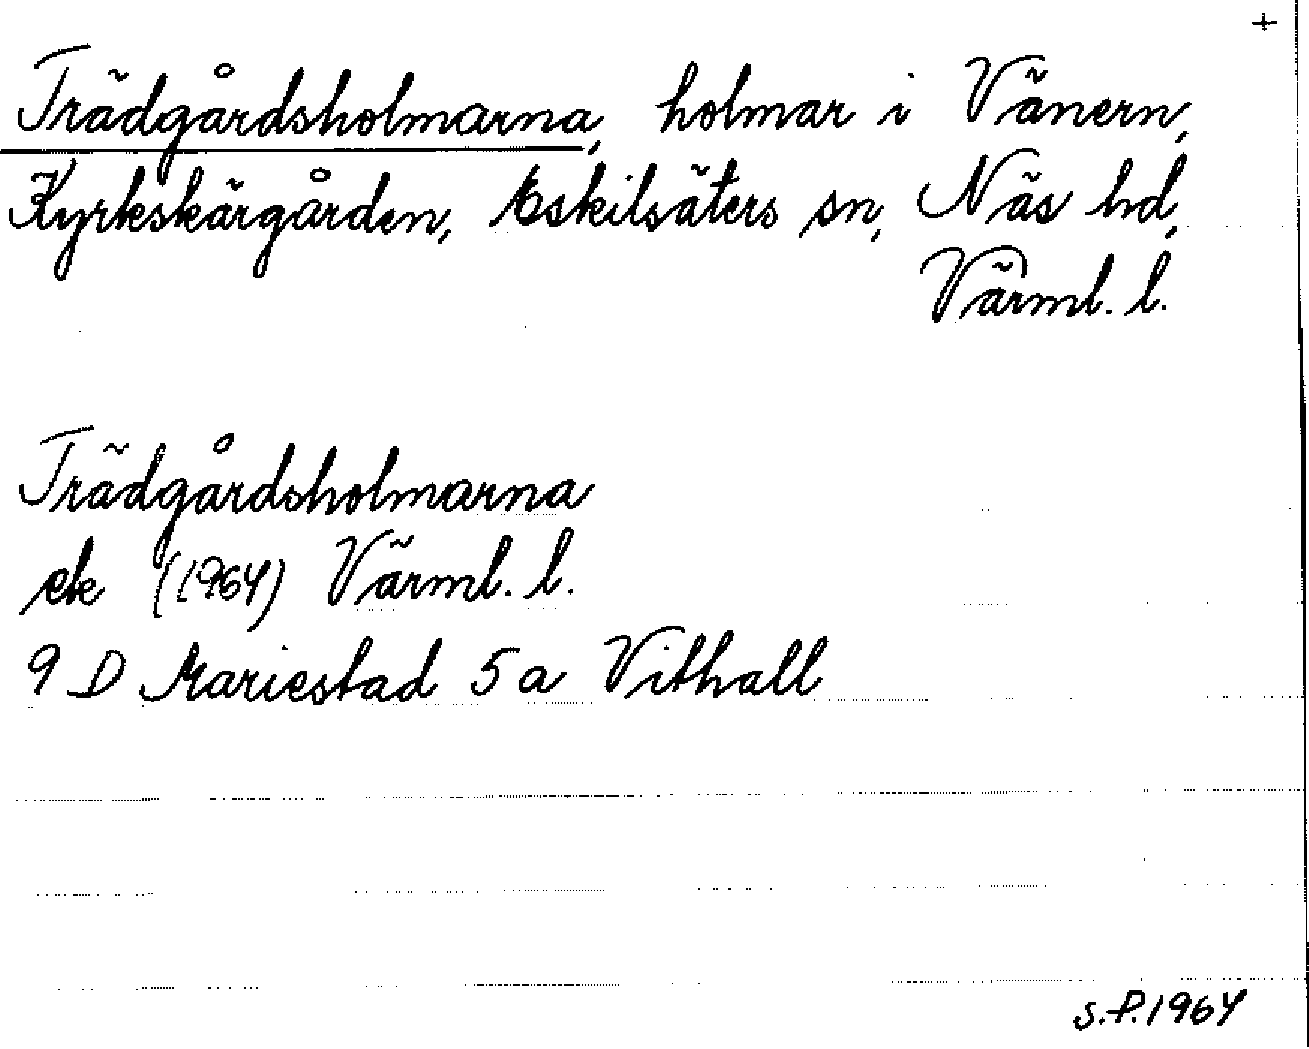 +
Trädgårdsholmarna, holmar i Vänern,
Kyrkskärgården, Eskilsäters sn, Näs hd,
Värml. l.
Trädgårdsholmarna
ek (1964) Värml. l.
9 D Mariestad 5 a Vithall
S.P. 1964